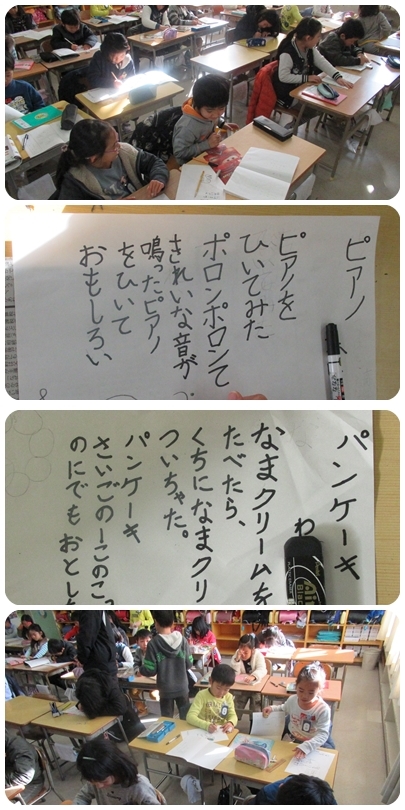 ピアノ
ピアノを
ひいてみた
ポロンポロンて
きれいな音が
鳴ったピアノ
をひいて
おもしろい
パンケーキ
わ
なまクリームを
たべたら、
くちになまクリ
ついちゃた。
パンケーキ
さいごの一このこ
のにでもおとし